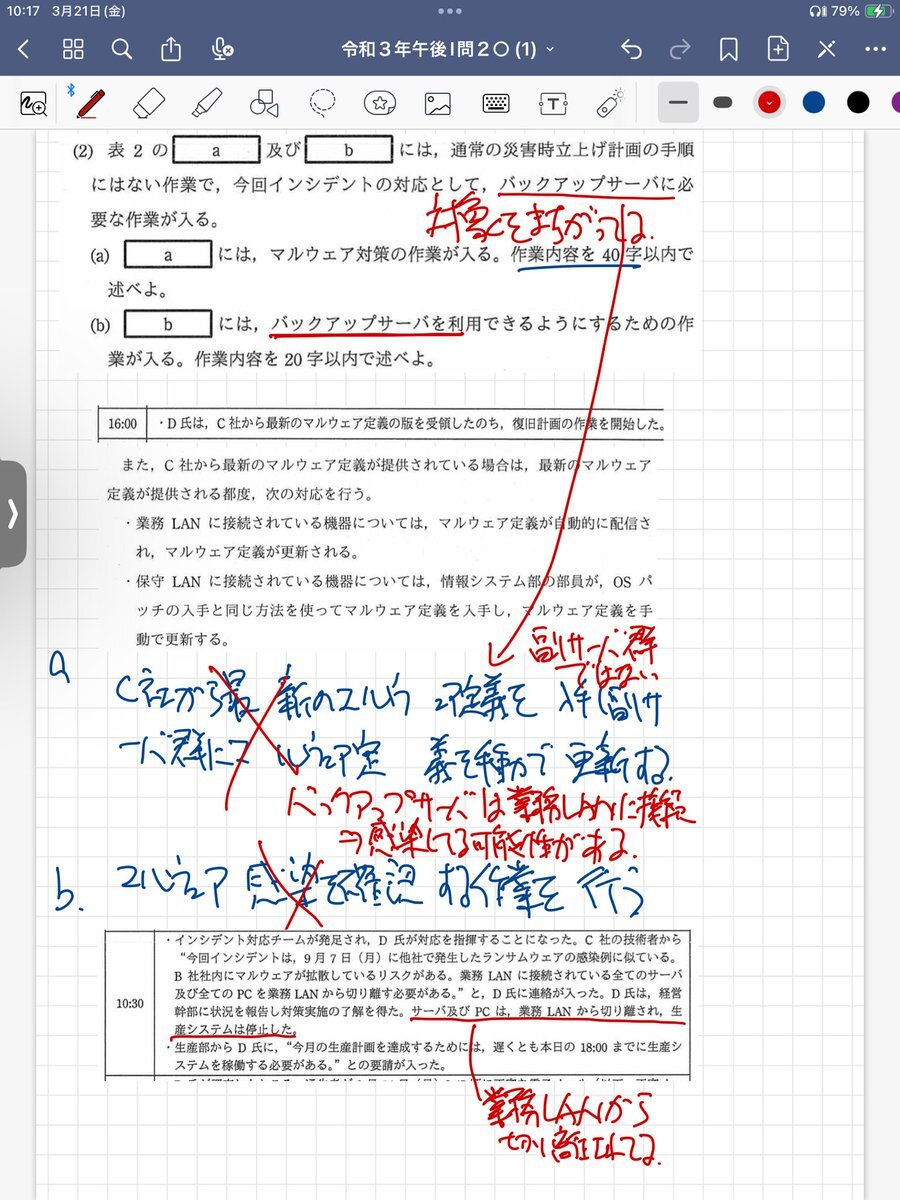 10:17 3月21日(金)
79%
令和3年午後Ⅰ問2○ (1)
(2) 表 2 の a 及び b には，通常の災害時立上げ計画の手順
にはない作業で，今回インシデントの対応として，バックアップサーバに必
要な作業が入る。
(a) a には，マルウェア対策の作業が入る。作業内容を 40 字以内で
述べよ。
(b) b には，バックアップサーバを利用できるようにするための作
業が入る。作業内容を 20 字以内で述べよ。
16:00 ・D 氏は，C 社から最新のマルウェア定義の版を受領したのち，復旧計画の作業を開始した。
また，C 社から最新のマルウェア定義が提供されている場合は，最新のマルウェア
定義が提供される都度，次の対応を行う。
・業務 LAN に接続されている機器については，マルウェア定義が自動的に配信さ
れ，マルウェア定義が更新される。
・保守 LAN に接続されている機器については，情報システム部の部員が，OS パ
ッチの入手と同じ方法を使ってマルウェア定義を入手し，マルウェア定義を手
動で更新する。
副サーバ群
ではない
a
C社から最新のマルウェア定義を入手し副サ
ーバ群にマルウェア定義を手動で更新する。
バックアップサーバは業務LANに接続
⇒感染してる可能性がある。
b. マルウェア感染を確認する作業を行う
10:30
・インシデント対応チームが発足され，D 氏が対応を指揮することになった。C 社の技術者から
“今回インシデントは，9 月 7 日（月）に他社で発生したランサムウェアの感染例に似ている。
B 社社内にマルウェアが拡散しているリスクがある。業務 LAN に接続されている全てのサーバ
及び全ての PC を業務 LAN から切り離す必要がある。”と，D 氏に連絡が入った。D 氏は，経営
幹部に状況を報告し対策実施の了解を得た。サーバ及び PC は，業務 LAN から切り離され，生
産システムは停止した。
・生産部から D 氏に，“今月の生産計画を達成するためには，遅くとも本日の 18:00 までに生産シ
ステムを稼働する必要がある。”との要請が入った。
業務LANから
切り離されてる。